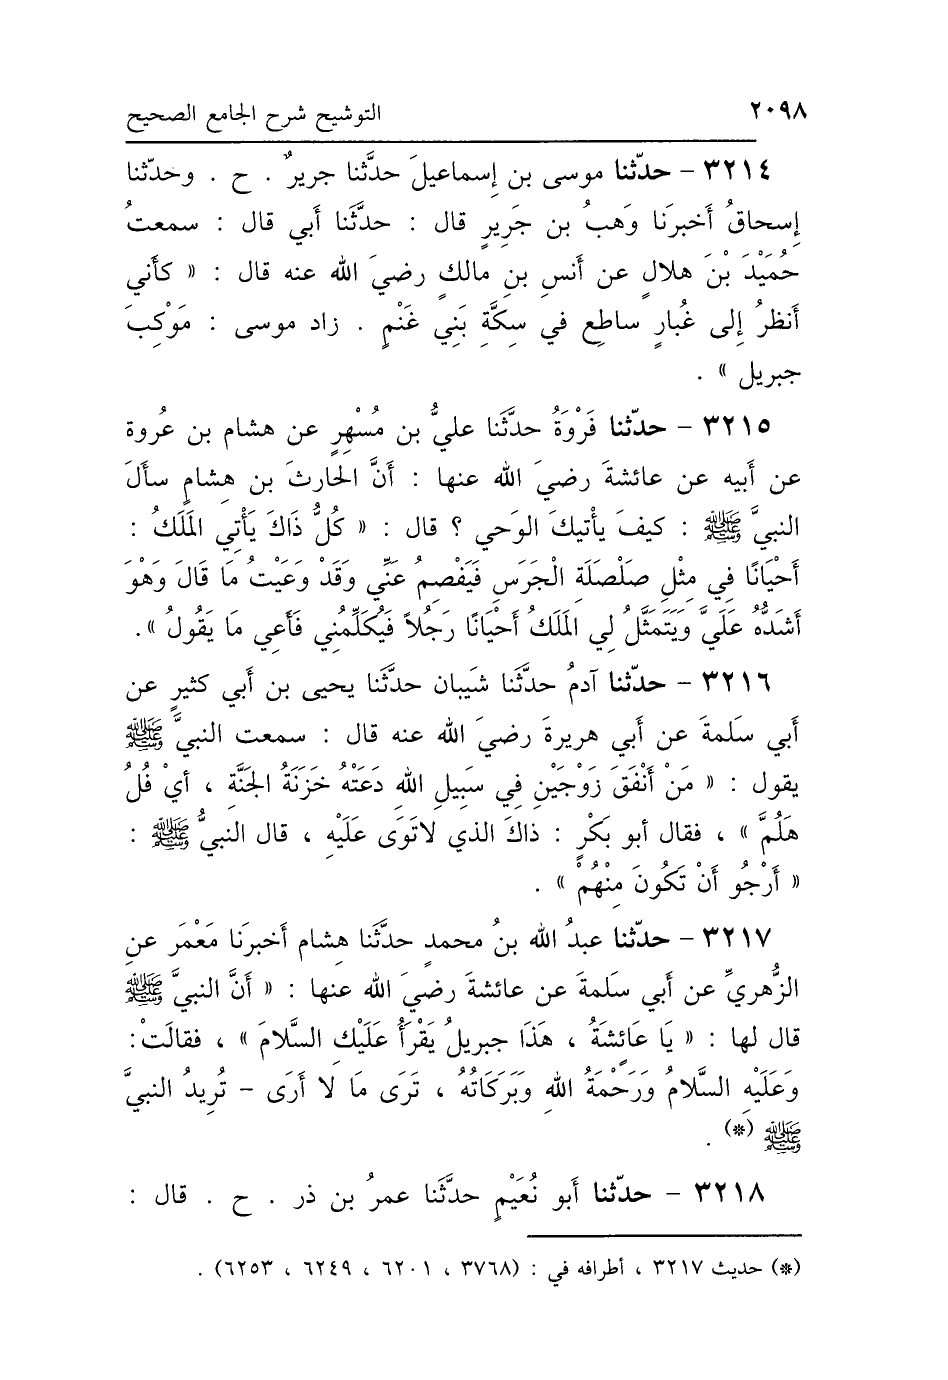 ٢٠٩٨ التوشيح شرح الجامع الصحيح
٣٢١٤ – حدّثنا موسى بن إسماعيلَ حدَّثنا جريرٌ . ح . وحدّثنا
إسحاقُ أخبرَنا وَهبُ بن جَريرٍ قال : حدَّثَنا أبي قال : سمعتُ
حُمَيْدَ بْنَ هلالٍ عن أَنسِ بنِ مالكٍ رضيَ الله عنه قال : « كأَني
أَنظرُ إلى غُبارٍ ساطِعٍ في سِكَّةِ بَنِي غَنْمٍ . زاد موسى : مَوْكِبَ
جبريل » .
٣٢١٥ – حدّثنا فَرْوَةُ حدَّثَنا عليُّ بن مُسْهِرٍ عن هشام بن عُروة
عن أَبيه عن عائشةَ رضيَ الله عنها : أَنَّ الحارثَ بن هِشامٍ سألَ
النبيَّ ﷺ : كيفَ يأْتيكَ الوَحي ؟ قال : « كُلُّ ذَاكَ يَأْتِي المَلَكُ :
أَحْيَانًا فِي مِثْلِ صَلْصَلَةِ الْجَرَسِ فَيَفْصِمُ عَنِّي وَقَدْ وَعَيْتُ مَا قَالَ وَهْوَ
أَشَدُّهُ عَلَيَّ وَيَتَمَثَّلُ لِي المَلَكُ أَحْيَانًا رَجُلاً فَيُكَلِّمُنِي فَأَعِي مَا يَقُولُ ».
٣٢١٦ – حدّثنا آدمُ حدَّثَنا شَيبان حدَّثَنا يحيى بن أَبي كثيرٍ عن
أَبي سَلمةَ عن أَبي هريرةَ رضيَ الله عنه قال : سمعت النبيَّ ﷺ
يقول : « مَنْ أَنْفَقَ زَوْجَيْنِ فِي سَبِيلِ اللهِ دَعَتْهُ خَزَنَةُ الجَنَّة ، أيْ فُلُ
هَلُمَّ » ، فقال أبو بَكْرٍ : ذاكَ الذي لاتَوَى عَلَيْهِ ، قال النبيُّ ﷺ :
« أَرْجُو أَنْ تَكُونَ مِنْهُمْ » .
٣٢١٧ – حدّثنا عبدُ الله بنُ محمدٍ حدَّثَنا هِشام أَخبرَنا مَعْمَر عنِ
الزُّهريِّ عن أَبي سلَمةَ عن عائشةَ رضيَ الله عنها : « أَنَّ النبيَّ ﷺ
قال لها : « يَا عَائِشَةُ ، هَذَا جِبريلُ يَقْرَأُ عَلَيْكِ السَّلامَ » ، فقالَتْ:
وَعَلَيْهِ السَّلامُ وَرَحْمَةُ اللهِ وَبَرَكَاتُهُ ، تَرَى مَا لا أَرَى – تُرِيدُ النبيَّ
ﷺ (*) .
٣٢١٨ – حدّثنا أَبو نُعَيْمٍ حدَّثَنا عمرُ بن ذر . ح . قال :
(*) حديث ٣٢١٧ ، أطرافه في : (٣٧٦٨ ، ٦٢٠١ ، ٦٢٤٩ ، ٦٢٥٣) .